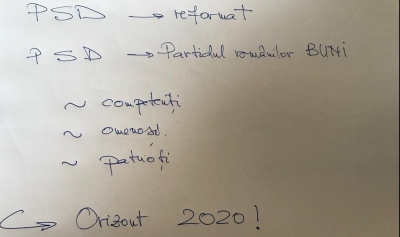 PSD → reformat
PSD → Partidul românilor BUNI
~ competenți
~ omenoși.
~ patrioți
↪ Orizont 2020!